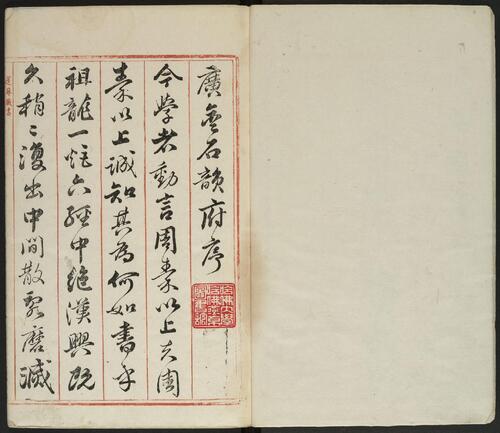 廣金石韻府序
今學者動言周秦以上夫周
秦以上誠知其為何如書乎
祖龍一炬六經中絶漢興既
久稍〻復出中間散亂磨滅